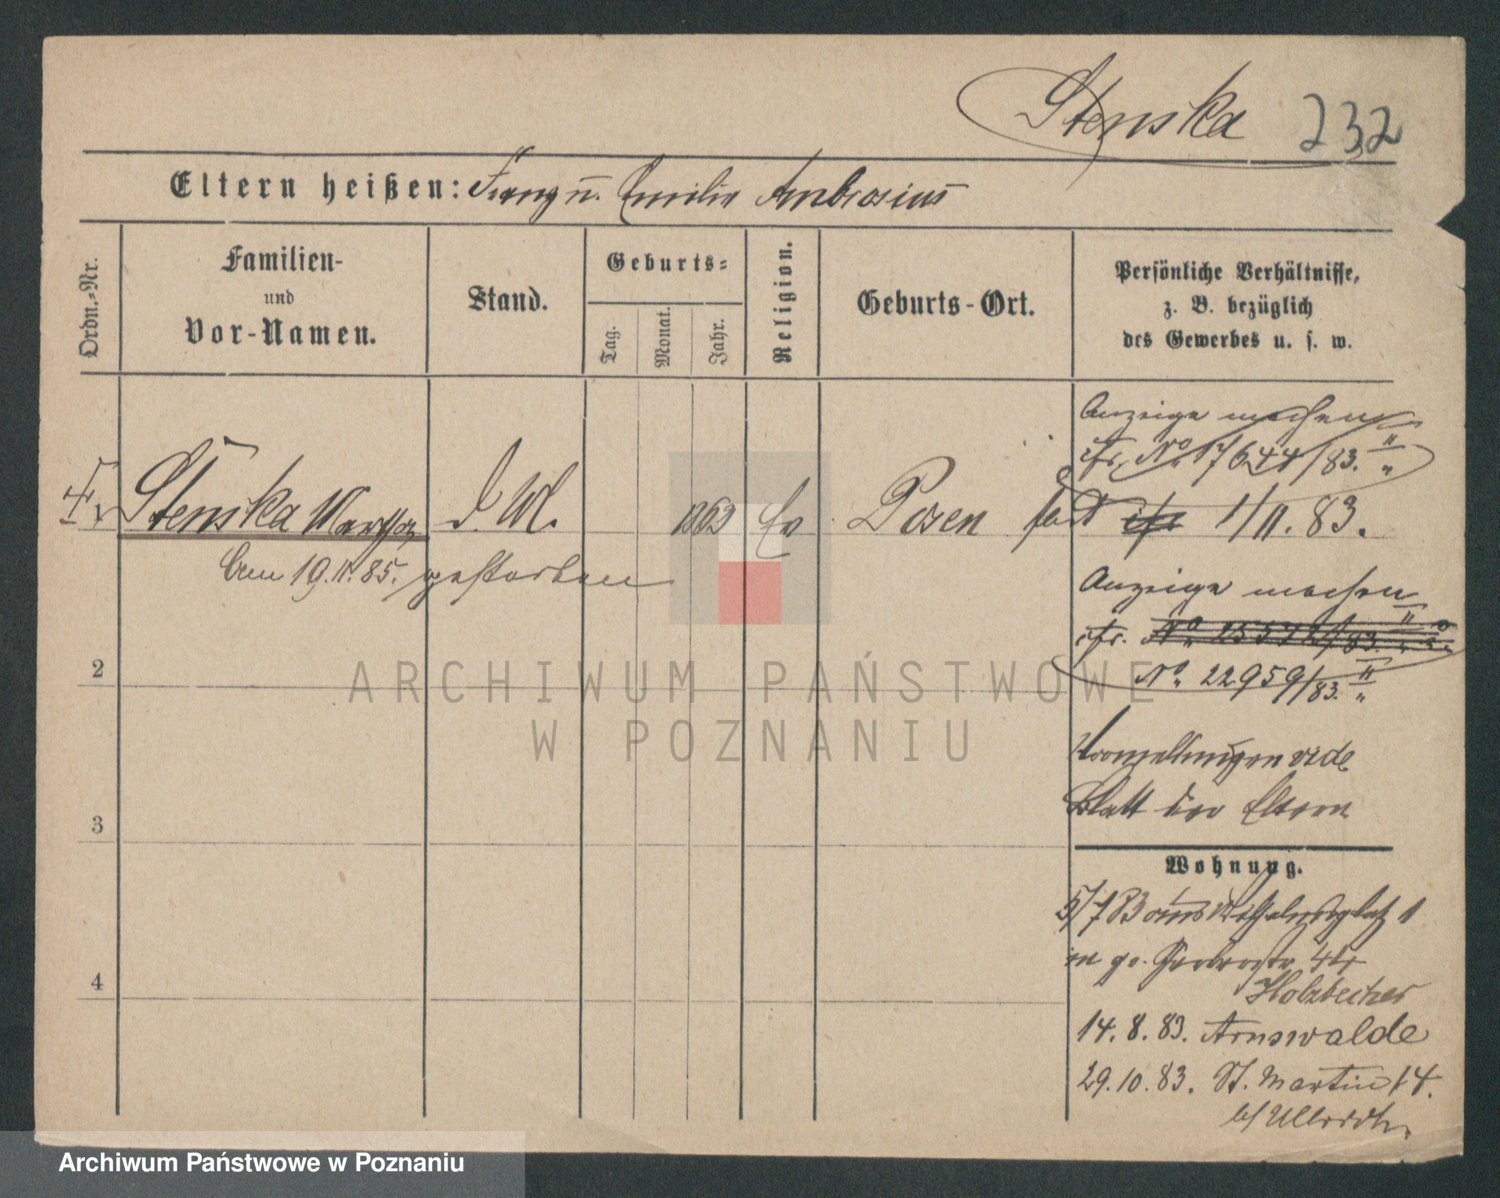 Stenska 232
Eltern heißen: Franz u. Emilie Ambrosius
Ordn.-Nr.
Familien-
und
Vor-Namen.
Stand.
Geburts-
Tag.
Monat.
Jahr.
Religion.
Geburts-Ort.
Persönliche Verhältnisse,
z. B. bezüglich
des Gewerbes u. s. w.
Anzeige machen
cfr. No. 17644/83. II
Stenska D. M. 1862 Ev Posen 1/11. 83.
am 19. 11. 85. gestorben
Anzeige machen
cfr. No. 25572/83.
No. 22959/83. II
2
Vormeldungen vide
Blatt der Eltern
3
Wohnung.
5/7 83 aus Wilhelmsplatz 1
4
Holzbecher
14. 8. 83. Arnswalde
29. 10. 83. St. Martin 14.
b/
ARCHIWUM PAŃSTWOWE
W POZNANIU
Archiwum Państwowe w Poznaniu